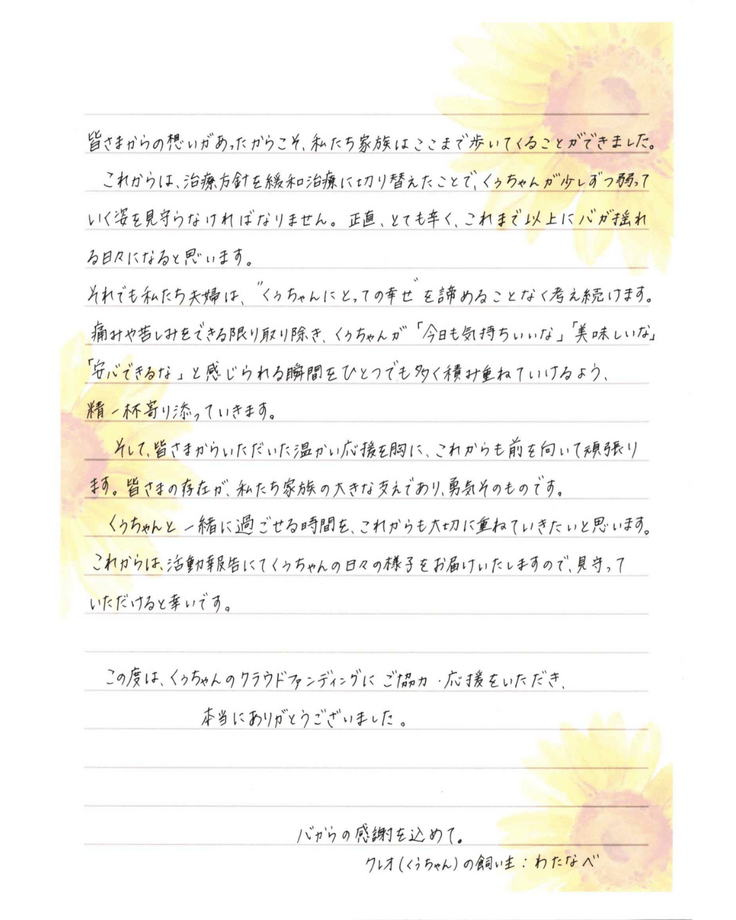 皆さまからの想いがあったからこそ、私たち家族はここまで歩いてくることができました。
これからは、治療方針を緩和治療に切り替えたことで、くぅちゃんが少しずつ弱って
いく姿を見守らなければなりません。正直、とても辛く、これまで以上に心が揺れ
る日々になると思います。
それでも私たち夫婦は、"くぅちゃんにとっての幸せ"を諦めることなく考え続けます。
痛みや苦しみをできる限り取り除き、くぅちゃんが「今日も気持ちいいな」「美味しいな」
「安心できるな」と感じられる瞬間をひとつでも多く積み重ねていけるよう、
精一杯寄り添っていきます。
そして、皆さまからいただいた温かい応援を胸に、これからも前を向いて頑張り
ます。皆さまの存在が、私たち家族の大きな支えであり、勇気そのものです。
くぅちゃんと一緒に過ごせる時間を、これからも大切に重ねていきたいと思います。
これからは、活動報告にてくぅちゃんの日々の様子をお届けいたしますので、見守って
いただけると幸いです。
この度は、くぅちゃんのクラウドファンディングにご協力・応援をいただき、
本当にありがとうございました。
心からの感謝を込めて。
クレオ(くぅちゃん)の飼い主：わたなべ